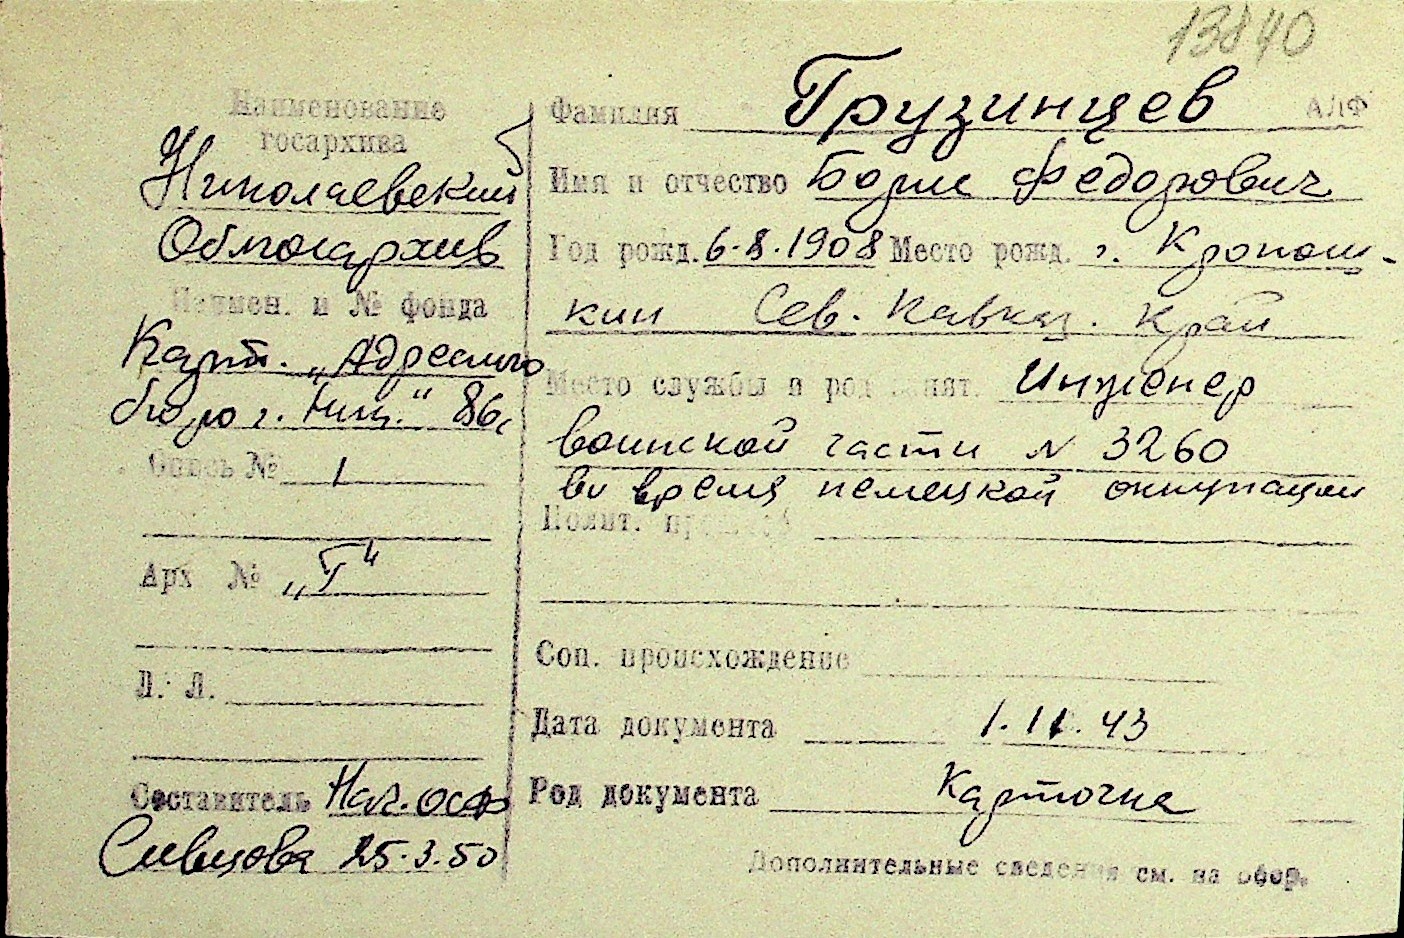 13840
Наименование
госархива
Николаевский
Облгосархив
Наимен. и № фонда
Карт. „Адресного
бюро г. Ник." 86с
Опись № 1
Арх № „Г"
Л. Л.
Составитель Нач. осф
Сивцова 25.3.50
Фамилия Грузинцев АЛФ
Имя и отчество Борис Федорович
Год рожд. 6.8.1908 Место рожд. г. Кропот-
кин Сев. Кавказ. Край
Место службы и род занят. Инженер
воинской части N 3260
во время немецкой оккупации
Полит.
Соц. происхождение
Дата документа 1.11.43
Род документа Карточка
Дополнительные сведения см. на обор.